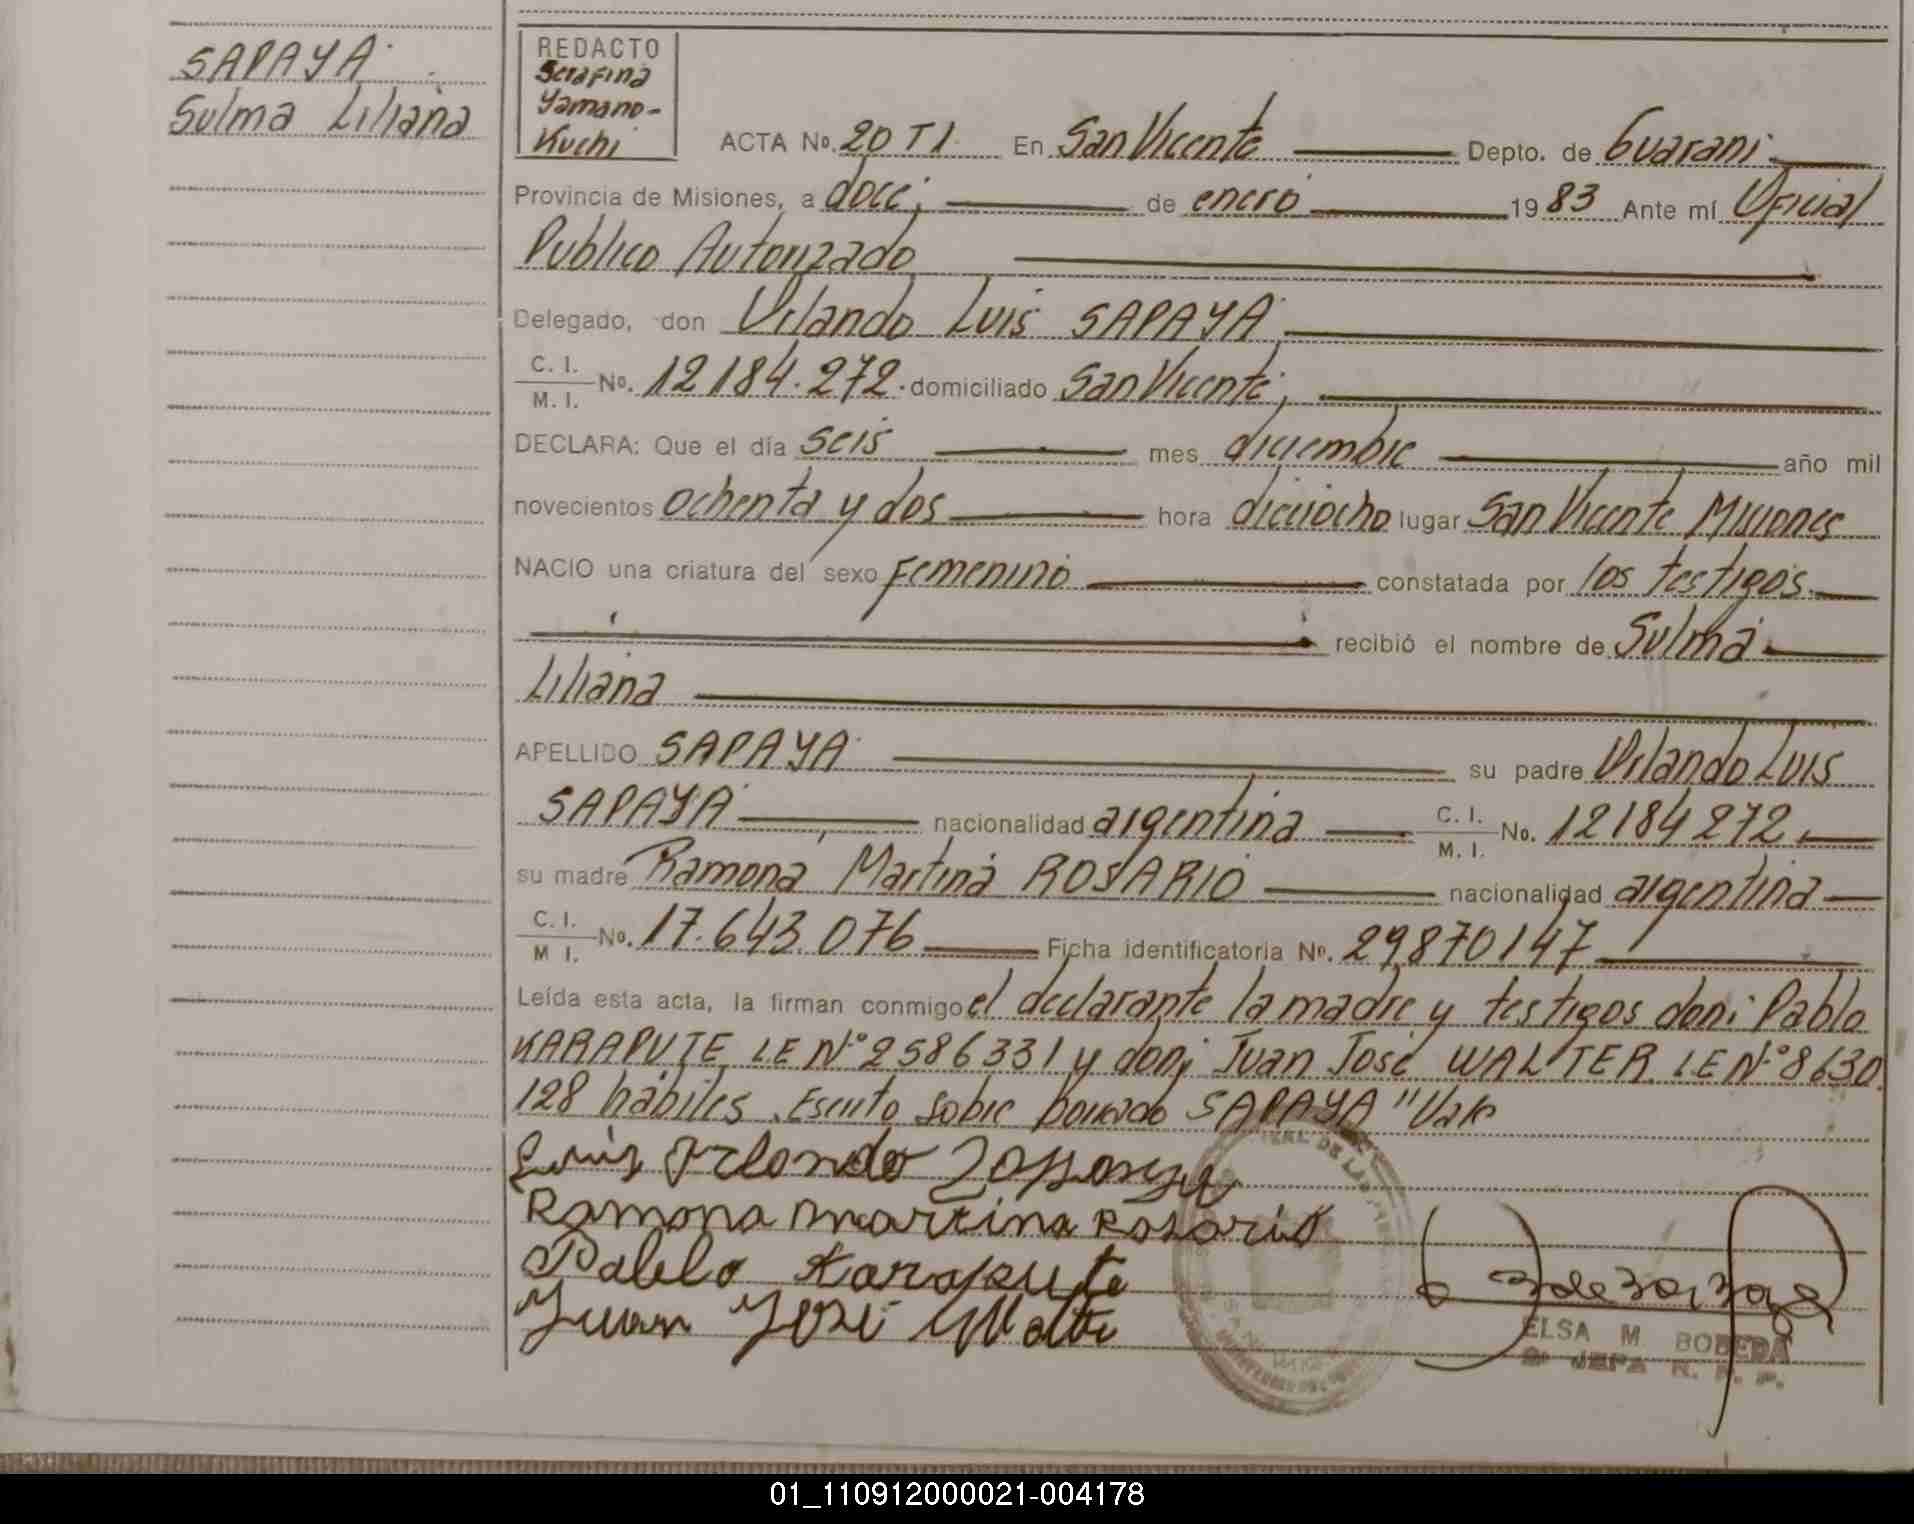 SAPAYA
Sulma Liliana
REDACTO
Serafina
Yamano-
Kuchi
ACTA No. 20 T1 En San Vicente Depto. de Guarani
Provincia de Misiones, a doce, de enero 1983 Ante mí Oficial
Publico Autorizado
Delegado, don Orlando Luis SAPAYA
C. I.
M. I. No. 12184.272. domiciliado San Vicente,
DECLARA: Que el día seis mes diciembre año mil
novecientos ochenta y dos hora dieciocho lugar San Vicente Misiones
NACIO una criatura del sexo Femenino constatada por los testigos.
recibió el nombre de Sulma
Liliana
APELLIDO SAPAYA su padre Orlando Luis
SAPAYA nacionalidad argentina C. I. M. I. No. 12184272,
su madre Ramona Martina ROSARIO nacionalidad argentina
C. I.
M I. No. 17.643.076 Ficha identificatoria No. 29870147
Leída esta acta, la firman conmigo el declarante la madre y testigos don: Pablo
KARAPUTE LE Nº 2586331 y don; Juan José WALTER LE Nº 8630.
128 hábiles. Escrito sobre borrado SAPAYA "Vale
Luis Orlando Sapaya
Ramona martina Rosario
Pablo Karapute
Juan José Walter
ELSA M BOBEDA
JEFA R. P.
01_110912000021-004178